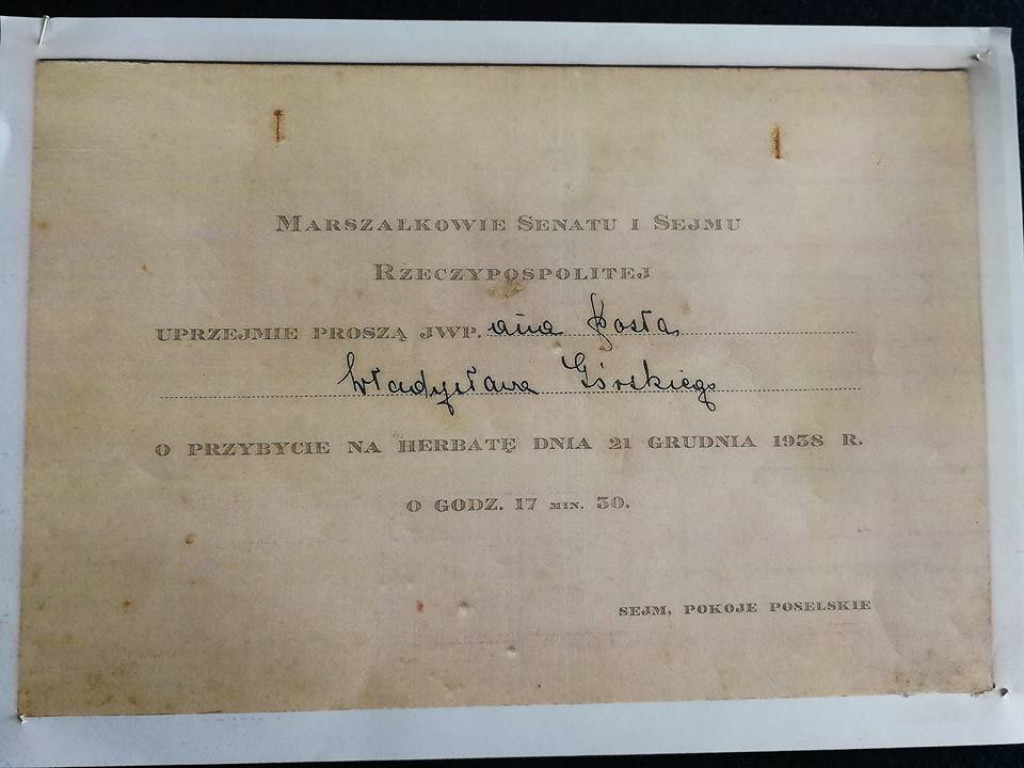 Marszałkowie Senatu i Sejmu
Rzeczypospolitej
uprzejmie proszą JWP. ana Posła
Władysława Górskiego
o przybycie na herbatę dnia 21 grudnia 1938 r.
o godz. 17 min. 30.
Sejm, pokoje poselskie